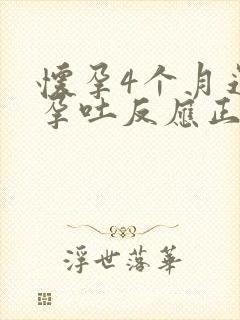 懷孕4个月
孕吐反應正
浮世落華